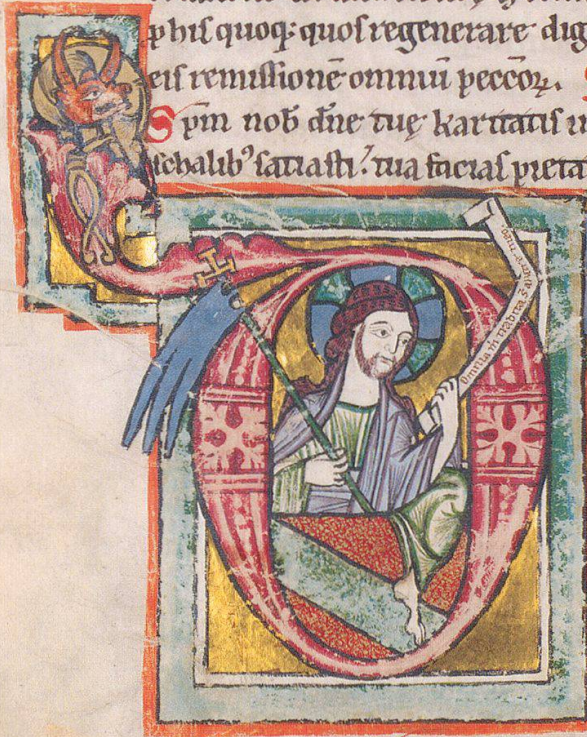 phis quoq; quos regenerare dig
eis remissionē omniū peccōꝝ.
Spm̄ nob̄ dn̄e tuę karitatis i
schalibꝰ satiasti.ʼ tua facias pieta
Omnia m̄ tradita s̄ a